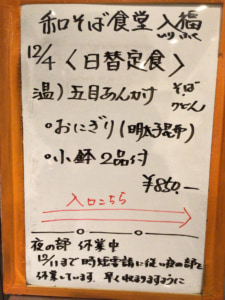 和そば食堂 入福
12/4 〈日替定食〉
温) 五目あんかけ そば うどん
・おにぎり (明太子昆布)
・小鉢 2品付
¥850.-
入口こちら
夜の部 休業中
12/11まで時短要請に従い夜の部を
休業しています。早く収まりますように